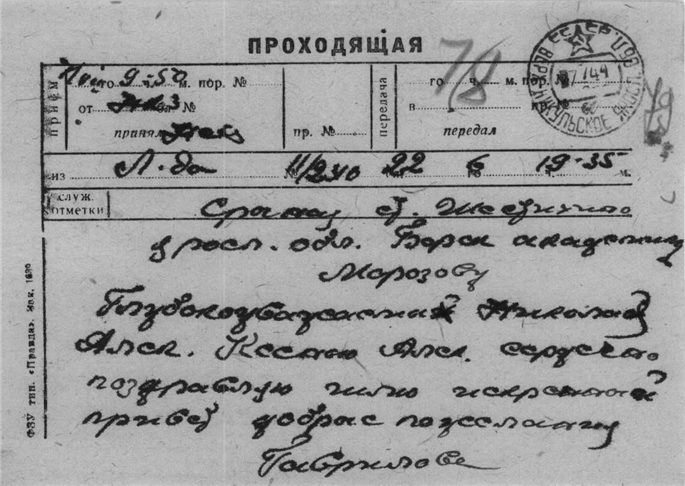 ПРОХОДЯЩАЯ
78
ПРИЕМ
го 9-50 м. пор. №
от
принял
пр. №
передача
го ч. м. пор. №
в пр. №
передал
из Л-да 11/240 22 6 го 19-35 м.
СЛУЖ. ОТМЕТКИ
Яросл. обл. Борок академику
Морозову
Глубокоуважаемый Николай
Алек. Ксению Алек. сердечно
поздравляю шлю искренний
привет добрые пожелания
Гаврилова
ФЗУ тип. «Правда». Зак. 1896